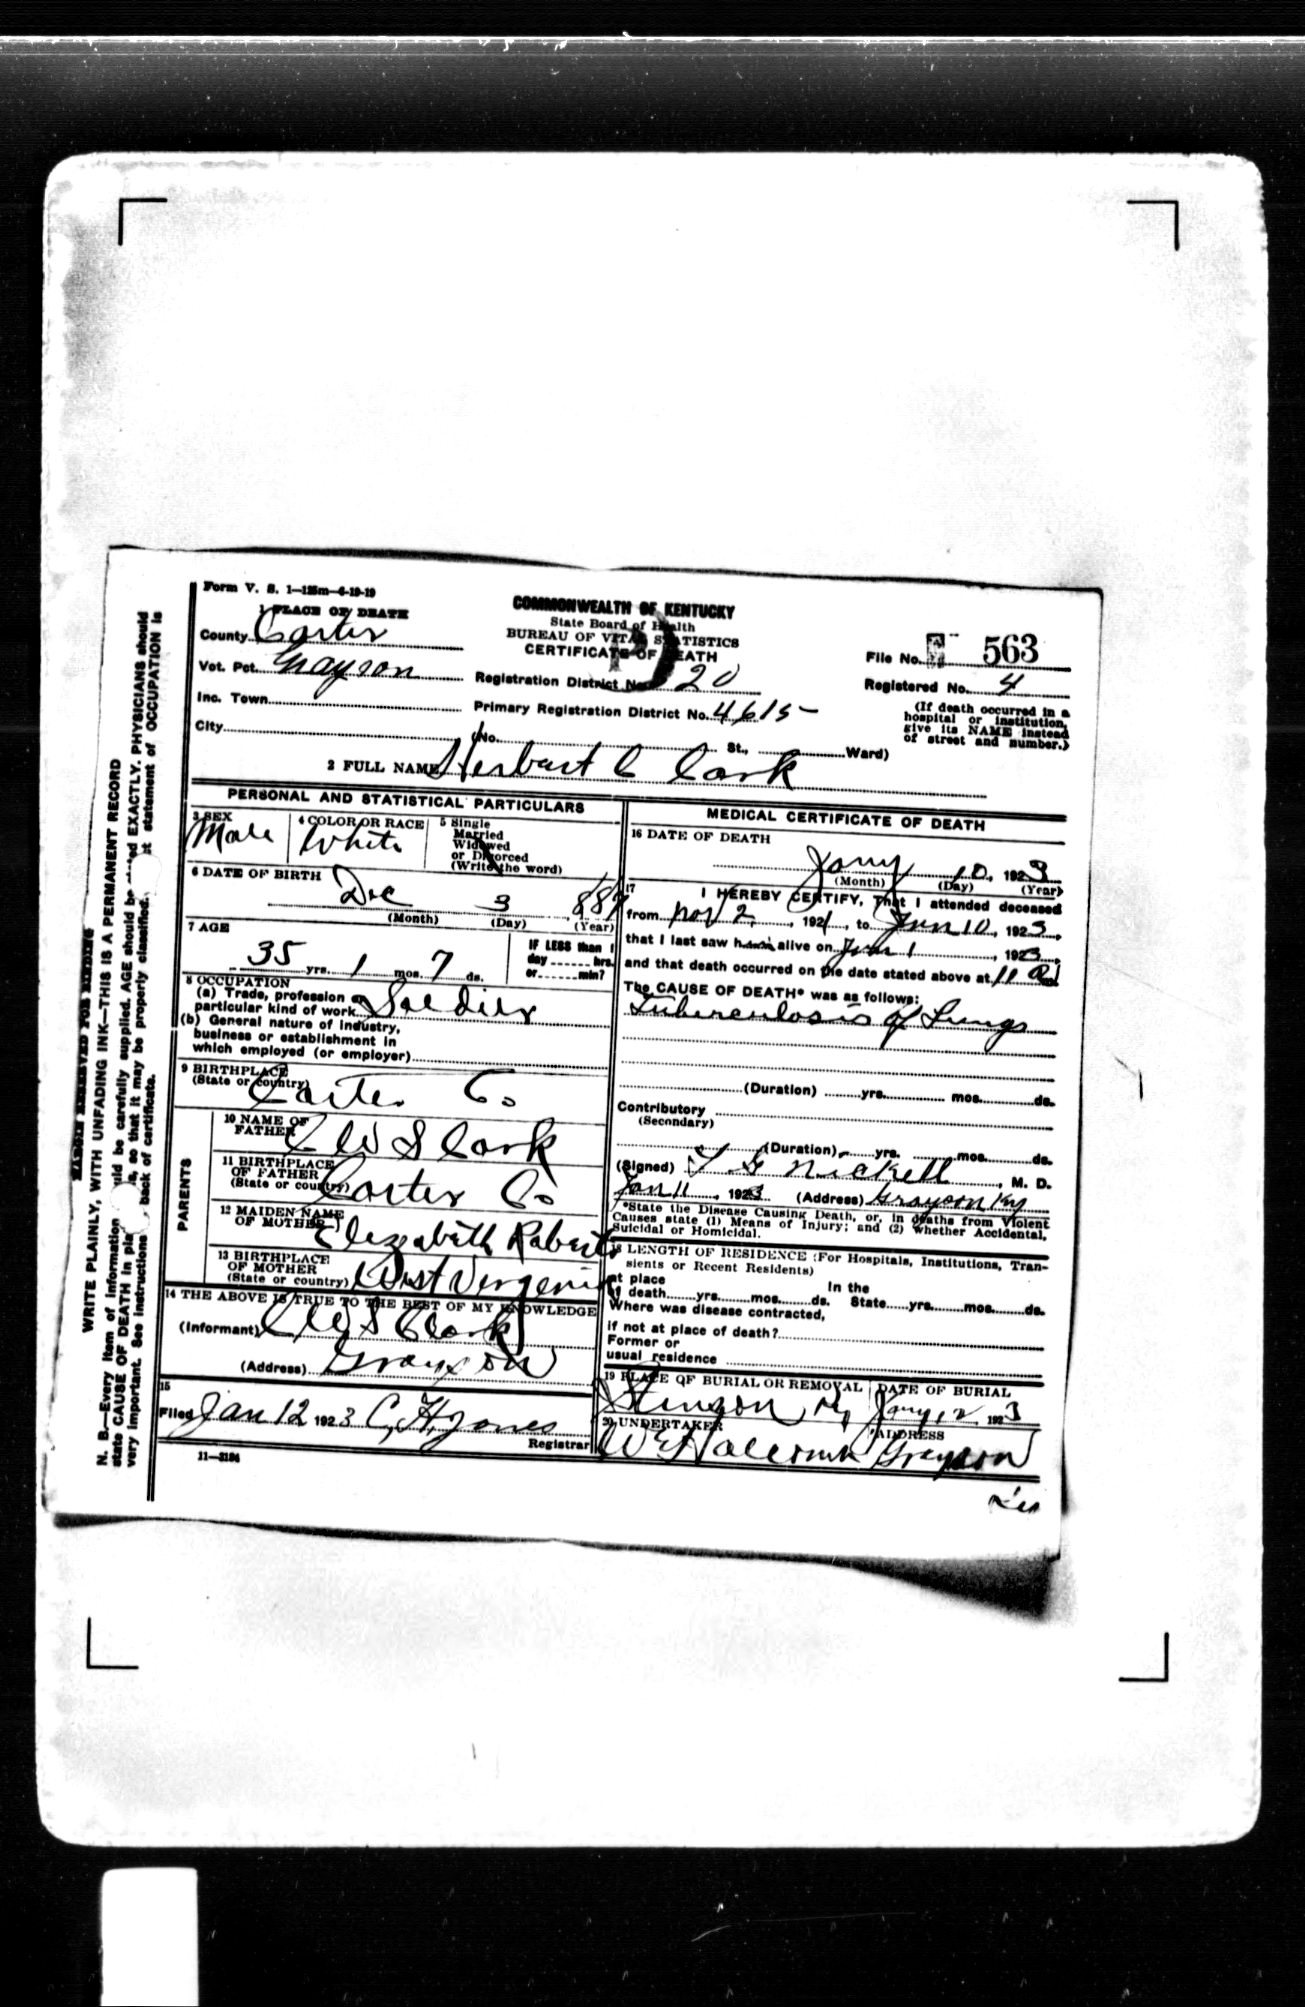 Form V. S. 1—125m—6-19-19
1 PLACE OF DEATH
County Carter
Vot. Pct. Grayson
Inc. Town
City
COMMONWEALTH OF KENTUCKY
State Board of Health
BUREAU OF VITAL STATISTICS
CERTIFICATE OF DEATH
Registration District No. 120
Primary Registration District No. 4615
(No. St., Ward)
File No. 563
Registered No. 4
(If death occurred in a
hospital or institution,
give its NAME instead
of street and number.)
2 FULL NAME Herbert C Clark
PERSONAL AND STATISTICAL PARTICULARS
3 SEX
Male
4 COLOR OR RACE
White
5 Single
Married
Widowed
or Divorced
(Write the word)
6 DATE OF BIRTH
Dec 3 1887
(Month) (Day) (Year)
7 AGE
35 yrs. 1 mos. 7 ds.
IF LESS than 1
day hrs.
or min?
8 OCCUPATION
(a) Trade, profession or
particular kind of work Soldier
(b) General nature of industry,
business or establishment in
which employed (or employer)
9 BIRTHPLACE
(State or country)
Carter Co
PARENTS
10 NAME OF
FATHER C W S Clark
11 BIRTHPLACE
OF FATHER
(State or country) Carter Co
12 MAIDEN NAME
OF MOTHER Elezabeth Roberts
13 BIRTHPLACE
OF MOTHER
(State or country) West Vergenia
14 THE ABOVE IS TRUE TO THE BEST OF MY KNOWLEDGE
(Informant) C W S Clark
(Address) Grayson
15
Filed Jan 12 1923 C. H. Jones
Registrar
11—3184
MEDICAL CERTIFICATE OF DEATH
16 DATE OF DEATH
Jany 10, 1923
(Month) (Day) (Year)
17 I HEREBY CERTIFY, That I attended deceased
from Nov 2, 1921, to Jan 10, 1923,
that I last saw him alive on Jan 1, 1923,
and that death occurred on the date stated above at 11
The CAUSE OF DEATH* was as follows:
Tuberculosis of Lungs
(Duration) yrs. mos. ds.
Contributory
(Secondary)
(Duration) yrs. mos. ds.
(Signed) Nickell, M. D.
Jan 11, 1923 (Address) Grayson Ky
*State the Disease Causing Death, or, in deaths from Violent
Causes state (1) Means of Injury; and (2) whether Accidental,
Suicidal or Homicidal.
18 LENGTH OF RESIDENCE (For Hospitals, Institutions, Tran-
sients or Recent Residents)
At place In the
of death yrs. mos. ds. State yrs. mos. ds.
Where was disease contracted,
if not at place of death?
Former or
usual residence
19 PLACE OF BURIAL OR REMOVAL DATE OF BURIAL
Stinson Ky Jany 12 1923
20 UNDERTAKER ADDRESS
W E Halcomb Grayson
MARGIN RESERVED FOR BINDING
WRITE PLAINLY, WITH UNFADING INK—THIS IS A PERMANENT RECORD
N. B.—Every item of information should be carefully supplied. AGE should be stated EXACTLY. PHYSICIANS should
state CAUSE OF DEATH in plain terms, so that it may be properly classified. Exact statement of OCCUPATION is
very important. See instructions on back of certificate.